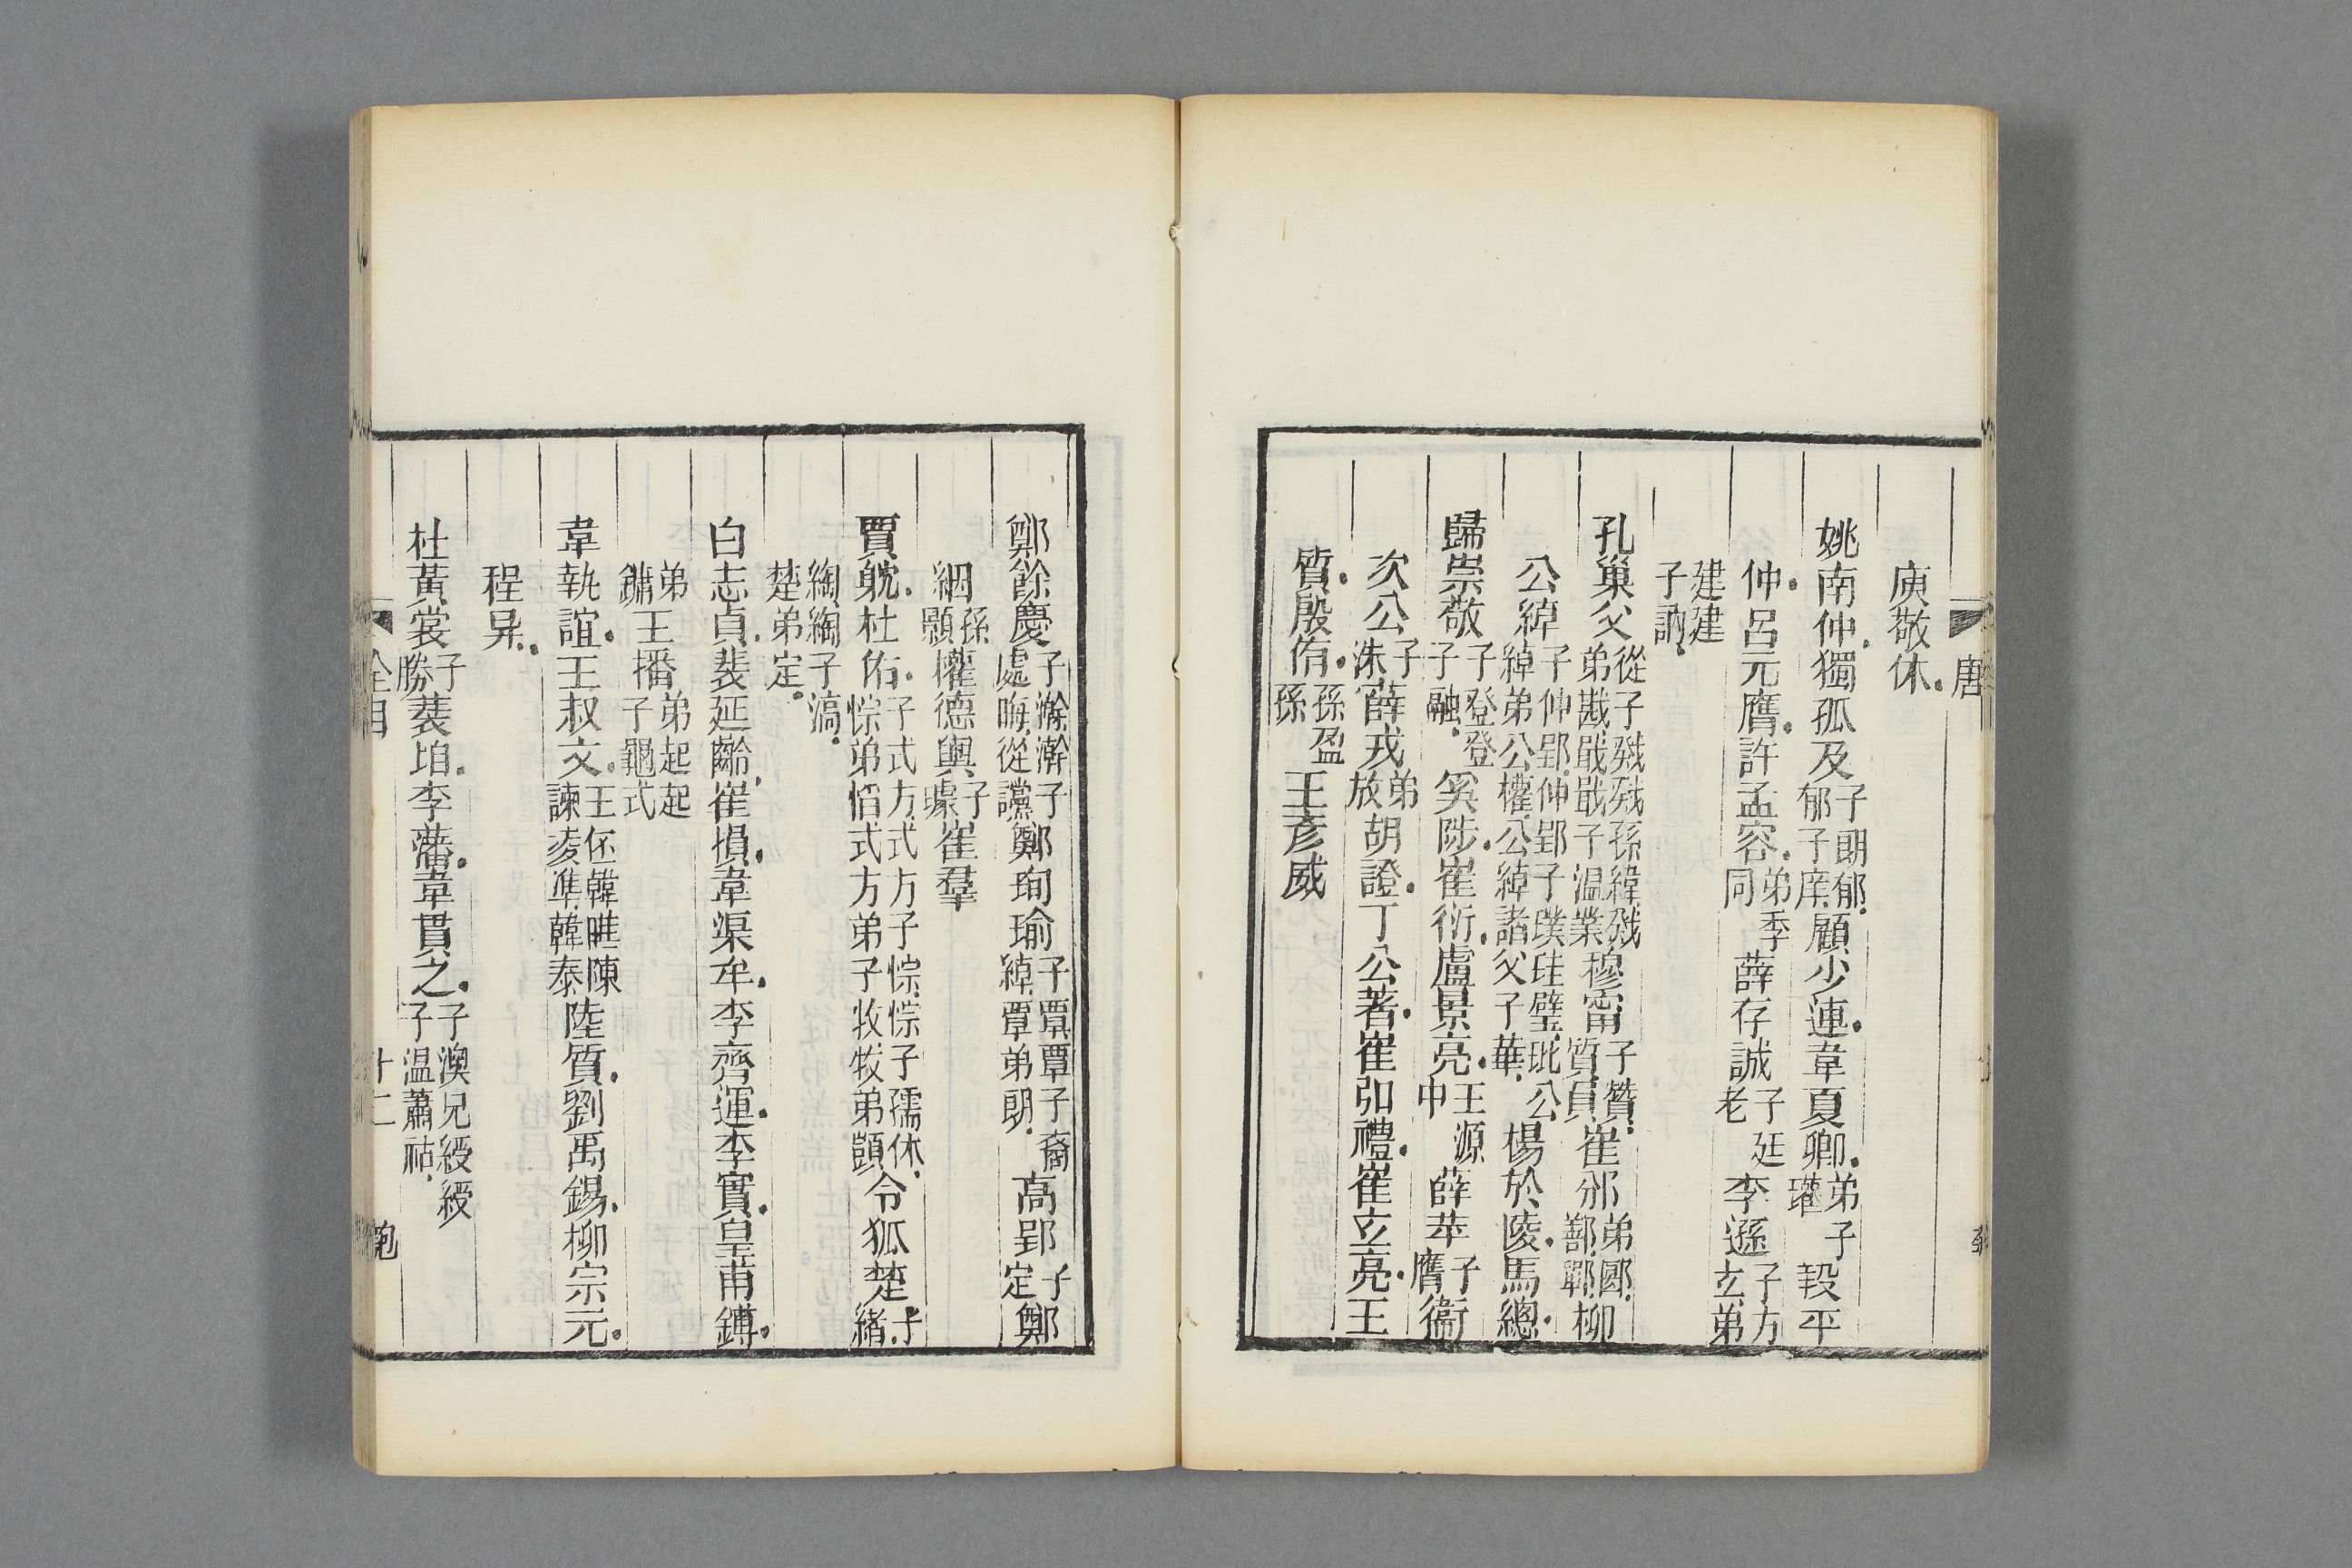 唐
庾敬休
姚南仲獨孤及子朗郁郁子庠顧少連韋夏卿弟子瓘段平
仲呂元膺許孟容弟季同薛存誠子廷老李遜子方玄弟
建建子訥
孔巢父從子戣戣孫緯戣弟戡戢戢子溫業穆寧子贊質員崔邠弟郾鄯鄲柳
公綽子仲郢仲郢子璞珪璧玭公綽弟公權公綽諸父子華楊於陵馬總
歸崇敬子登登子融奚陟崔衍盧景亮王源中薛苹子膺衞
次公子洙薛戎弟放胡證丁公著崔弘禮崔玄亮王
質殷侑孫盈孫王彥威
鄭餘慶子澣澣子處晦從讜鄭珣瑜子覃覃子裔綽覃弟朗高郢子定鄭
絪孫顥權德輿子璩崔羣
賈躭杜佑子式方式方子悰悰子孺休悰弟恉式方弟子牧牧弟顗令狐楚子緒
綯綯子滈楚弟定
白志貞裴延齡崔損韋渠牟李齊運李實皇甫鎛
弟鏞王播弟起起子龜式
韋執誼王叔文王伾韓曄陳諫凌準韓泰陸質劉禹錫柳宗元
程异
杜黃裳子勝裴垍李藩韋貫之子澳兄綬綬子溫蕭祐
全目
十二